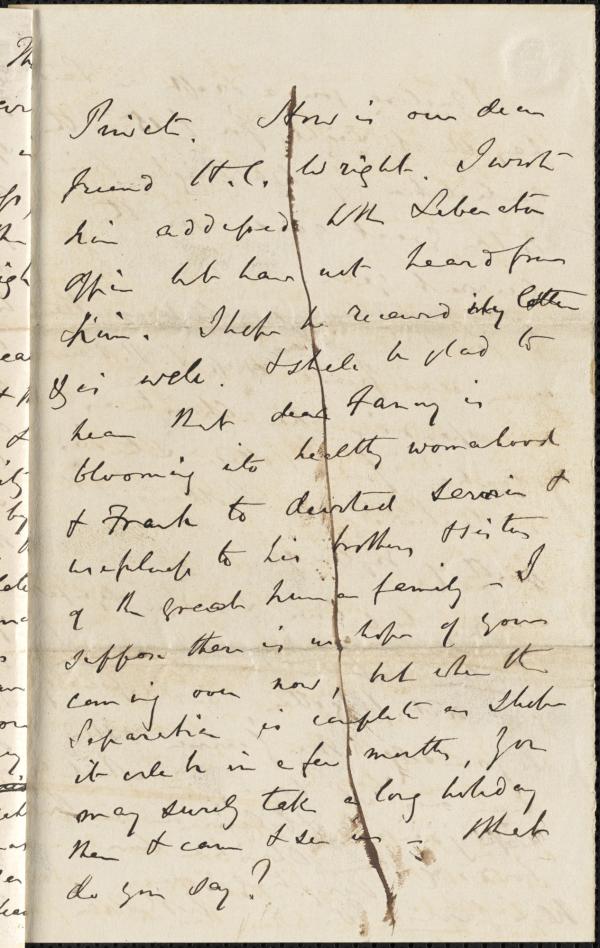 Private. How is our dear
friend H. C. Wright. I wrote
him addressed to the Liberator
Office but have not heard from
him. I hope he received my letter
& is well. I shall be glad to
hear that dear Fanny is
blooming into healthy womanhood
& Frank to devoted service &
usefulness to his brothers & sisters
of the great human family - I
suppose there is no hope of your
coming over now, but when the
Separation is complete as I hope
it will be in a few months, you
may surely take a long holiday
then & come & see us - What
do you say?